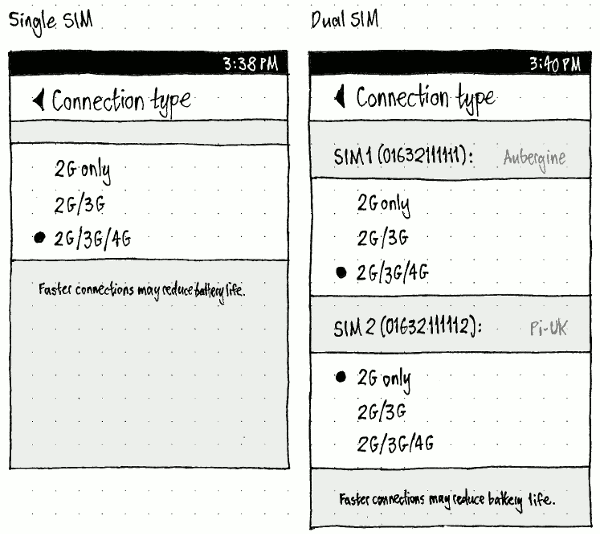 Single SIM
3:38 PM
Connection type
2G only
2G/3G
2G/3G/4G
Faster connections may reduce battery life.
Dual SIM
3:40 PM
Connection type
SIM 1 (01632111111): Aubergine
2G only
2G/3G
2G/3G/4G
SIM 2 (01632111112): Pi-UK
2G only
2G/3G
2G/3G/4G
Faster connections may reduce battery life.